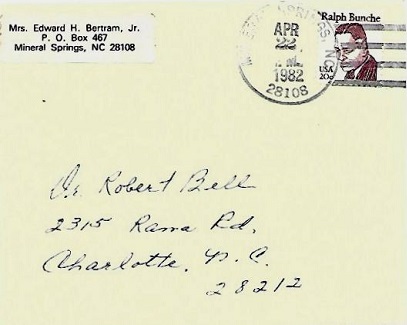 Mrs. Edward H. Bertram, Jr.
P. O. Box 467
Mineral Springs, NC 28108
MINERAL SPRINGS, NC
APR
22
P.M.
1982
28108
Ralph Bunche
USA
20c
Dr. Robert Bell
2315 Rama Rd.
Charlotte, N. C.
28212